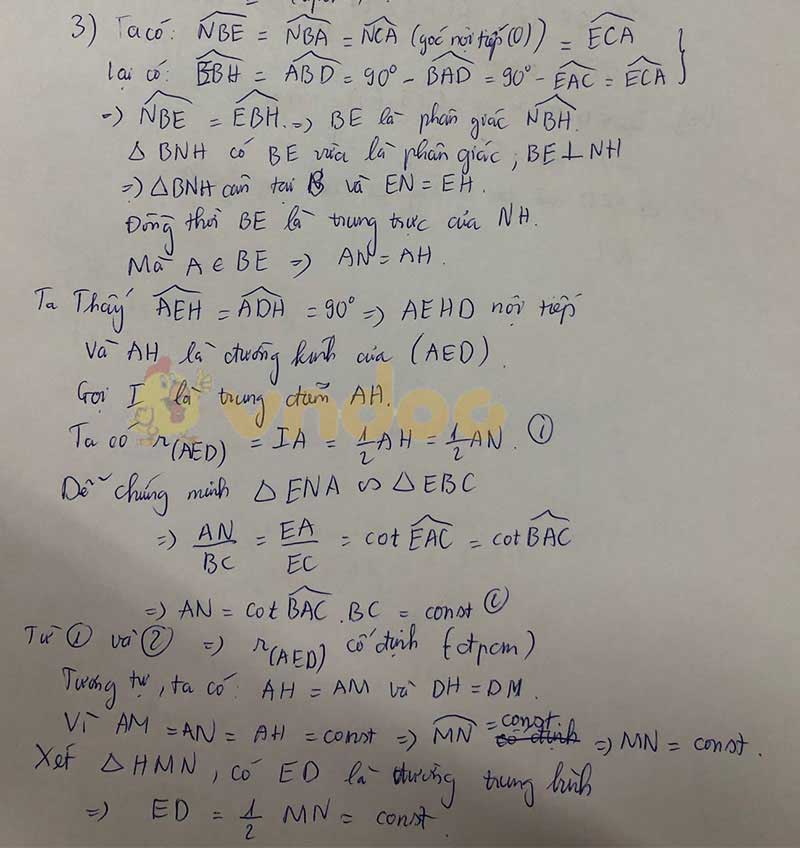 3) Ta có: NBE = NBA = NCA (góc nội tiếp (O)) = ECA
Lại có: EBH = ABD = 90° - BAD = 90° - EAC = ECA
=> NBE = EBH. => BE là phân giác NBH.
Δ BNH có BE vừa là phân giác, BE ⊥ NH
=> Δ BNH cân tại B và EN = EH.
Đồng thời BE là trung trực của NH.
Mà A ∈ BE => AN = AH.
Ta Thấy AEH = ADH = 90° => AEHD nội tiếp
Và AH là đường kính của (AED).
Gọi I là trung điểm AH.
vndoc
Ta có r(AED) = IA = 1/2 AH = 1/2 AN. ①
Dễ chứng minh Δ ENA ∽ Δ EBC
=> AN/BC = EA/EC = cot EAC = cot BAC
=> AN = cot BAC . BC = const
Từ ① và ② => r(AED) cố định (đpcm)
Tương tự, ta có: AH = AM và DH = DM.
Vì AM = AN = AH = const => MN = const. => MN = const.
Xét Δ HMN, có ED là đường trung bình
=> ED = 1/2 MN = const.